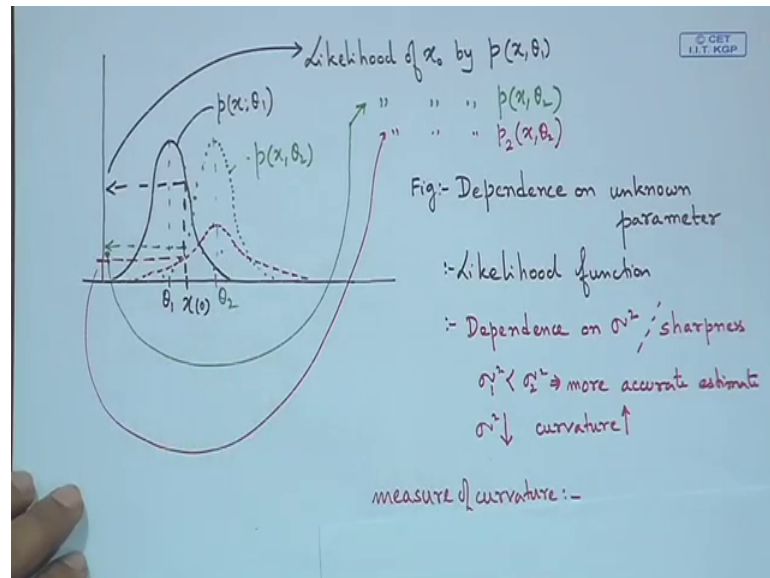 © CET
I.I.T. KGP
Likelihood of x₀ by p(x,θ₁)
" " " p(x,θ₂)
" " " p₂(x,θ₂)
p(x;θ₁)
p(x,θ₂)
θ₁ x(0) θ₂
Fig:- Dependence on unknown
parameter
:- Likelihood function
:- Dependence on σ² / sharpness
σ₁² < σ₂² ⇒ more accurate estimate
σ²↓ curvature↑
measure of curvature:-